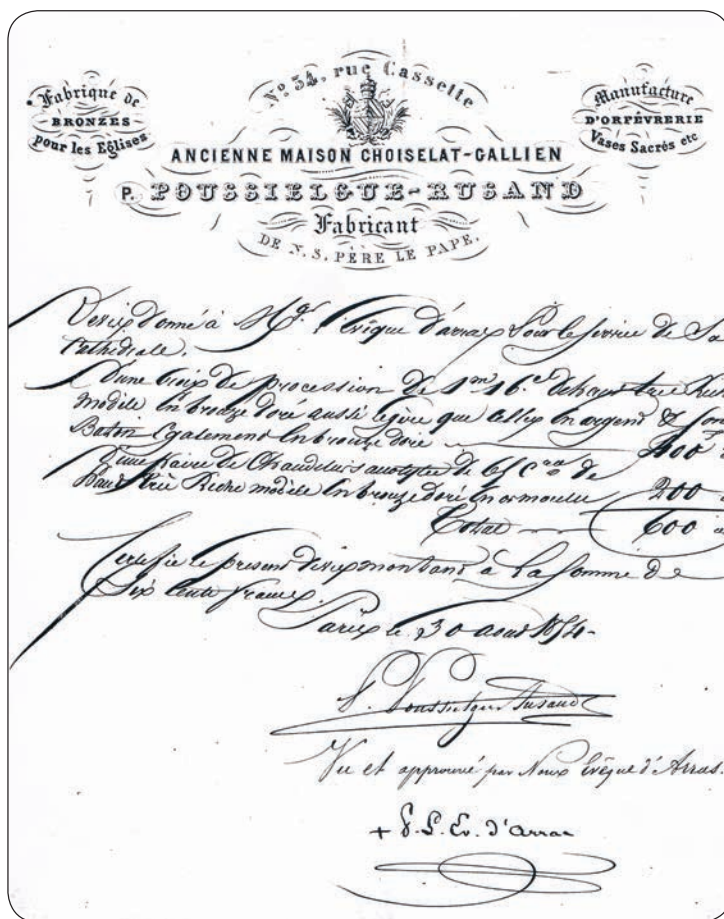 Fabrique de
BRONZES
pour les Eglises
No. 34, rue Cassette
Manufacture
D'ORFÉVRERIE
Vases Sacrés etc
ANCIENNE MAISON CHOISELAT-GALLIEN
P. POUSSIELGUE-RUSAND
Fabricant
DE N. S. PÈRE LE PAPE.
Devis donné à Mgr. l'évêque d'arras Pour le service de Sa
Cathédrale.
D'une Croix de procession de 1m 16c. de haut très Ri
modèle En bronze doré aussi légère que celles En argent & son
Baton Egalement En bronze doré 400
D'une paire de Chandeliers acolytes de de
haut très Riche modèle En bronze doré En or moulu 200
Total 600
Certifié le présent devis montant à la Somme de
Six Cents francs.
Paris le 30 aout 1854-
P. Poussielgue Rusand
Vu et approuvé par Nous Evêque d'Arras.
+ P. L. Ev. d'Arras